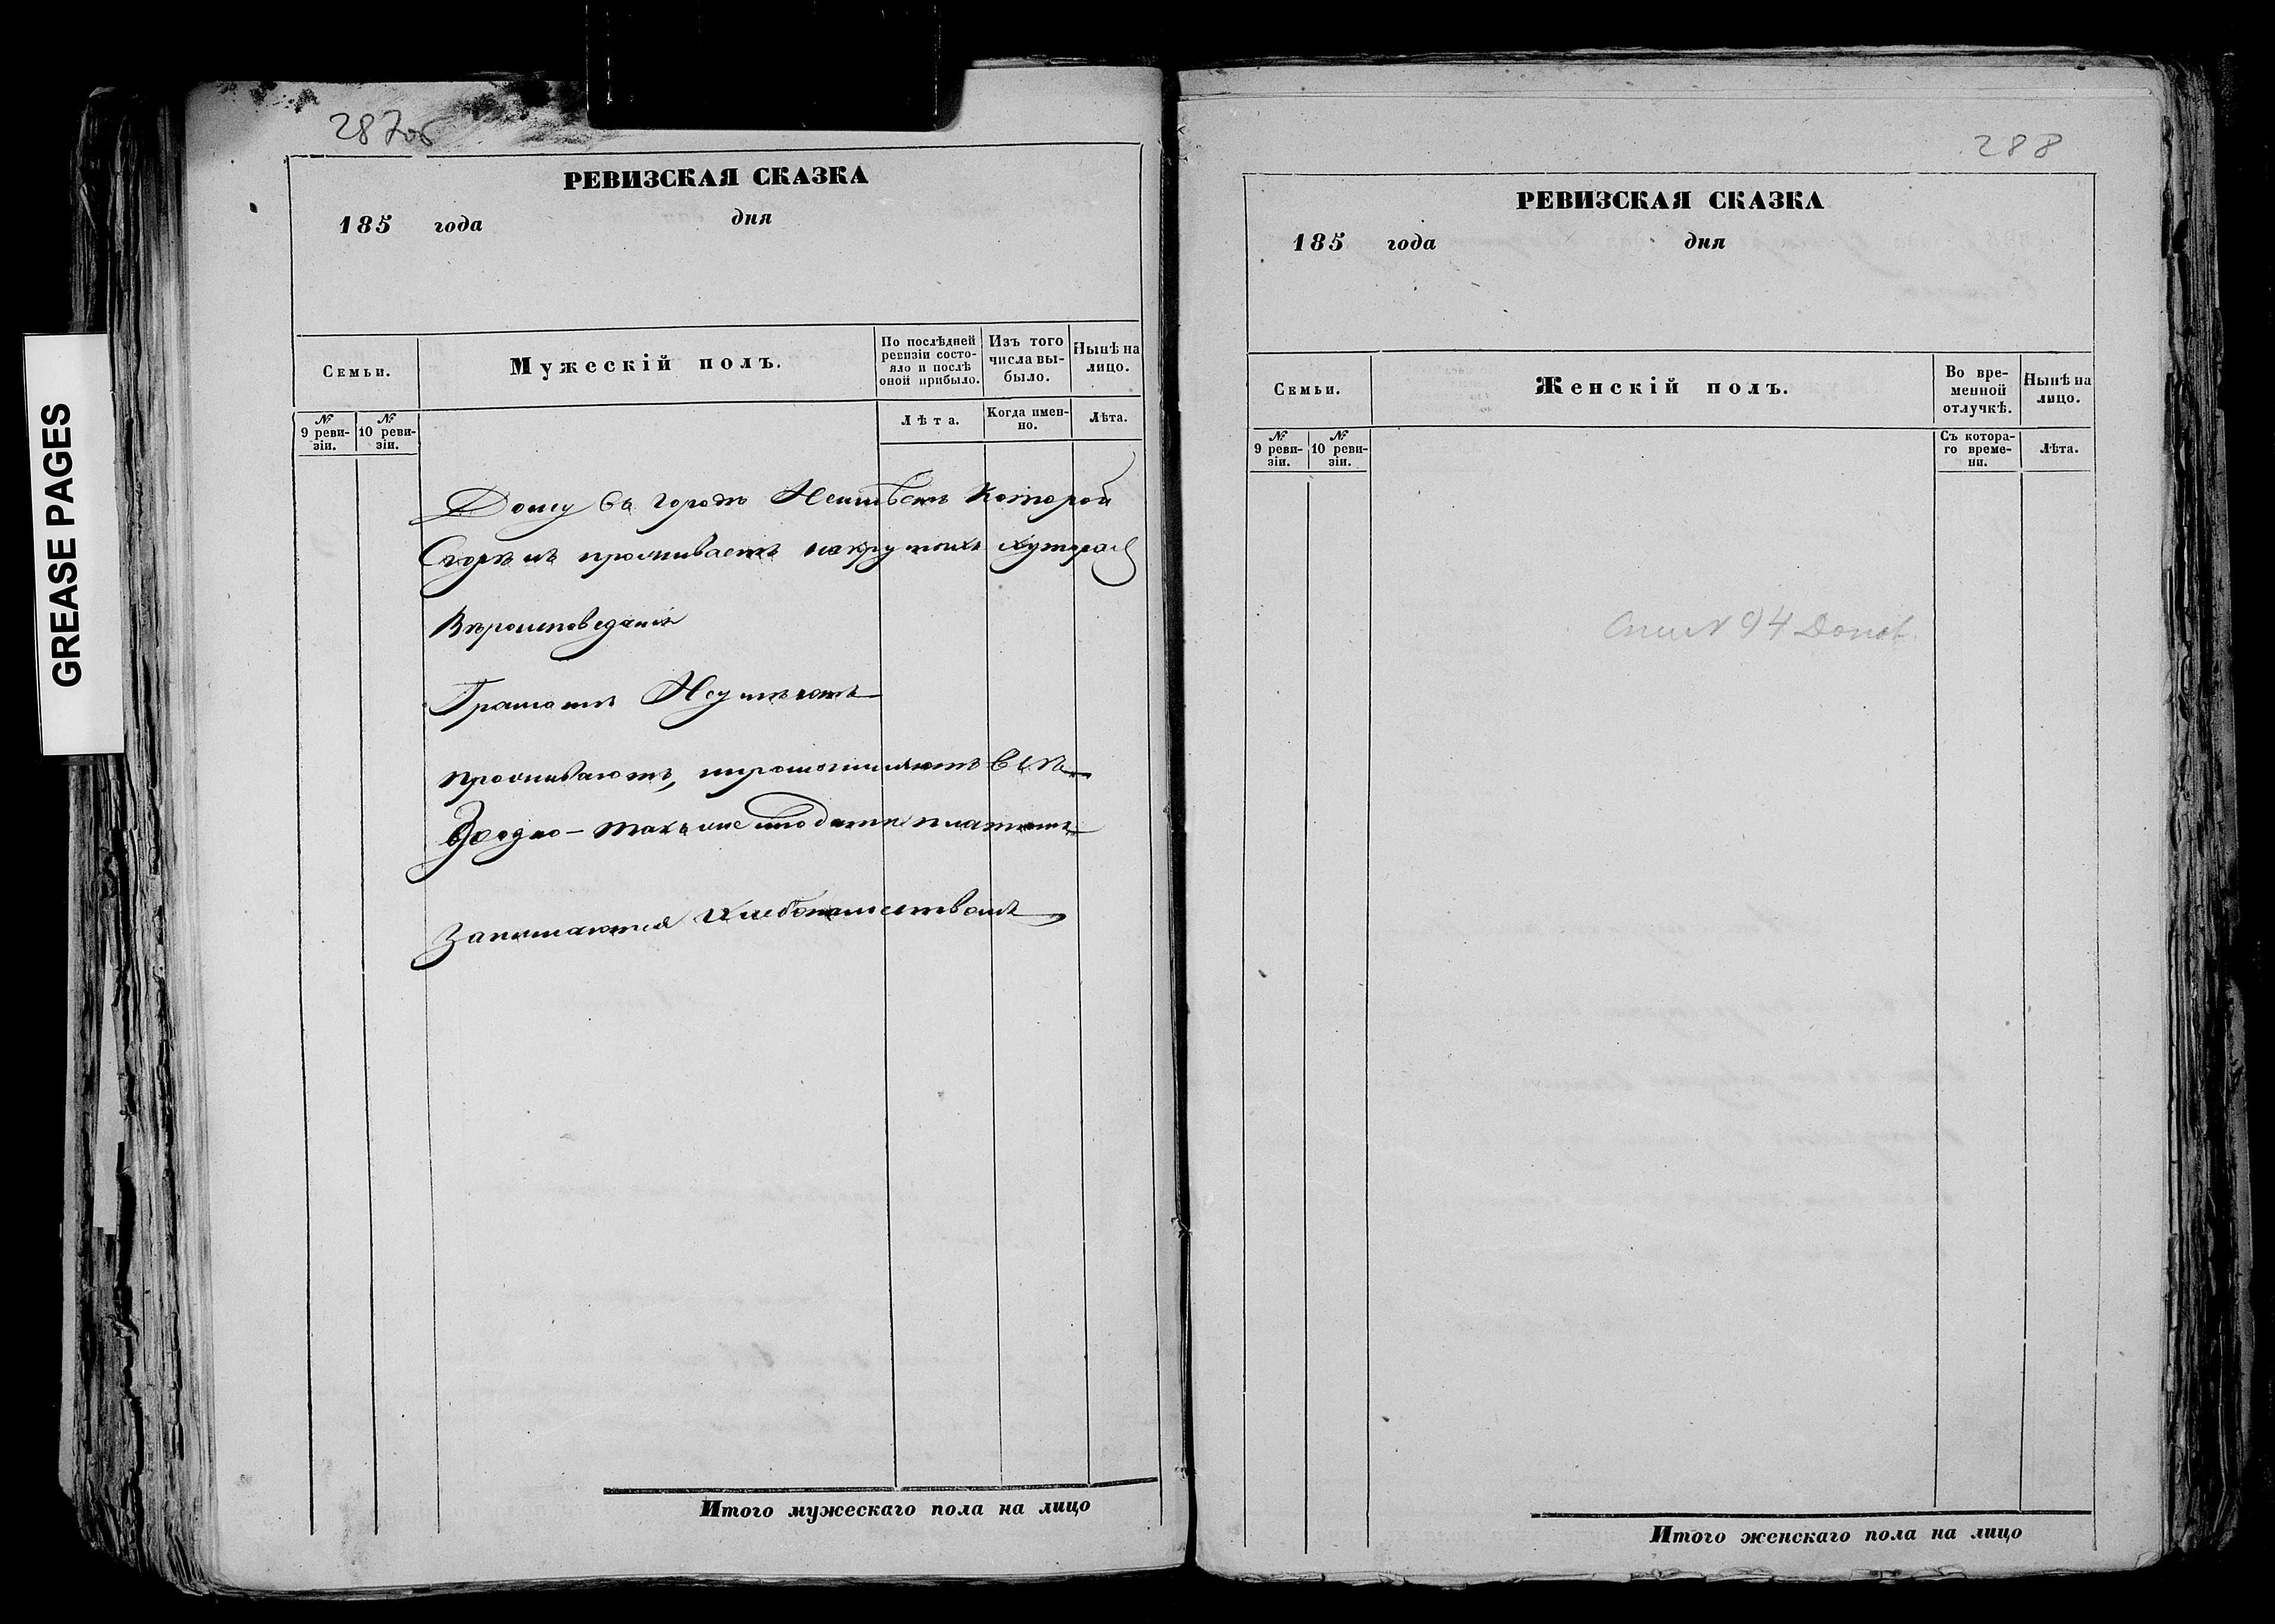 GREASE PAGES
287об
РЕВИЗСКАЯ СКАЗКА
185 года дня
Семьи.
Мужескій полъ.
По послѣдней ревизіи состояло и послѣ оной прибыло.
Изъ того числа выбыло.
Нынѣ на лицо.
№ 9 ревизіи.
№ 10 ревизіи.
Лѣта.
Когда именно.
Лѣта.
Дому въ городѣ Неимѣетъ которой
проживаетъ хуторах
Вѣроисповеданія
Грамотѣ Неумѣютъ
проживаютъ,
также подати платятъ
Занимаются хлебопашествомъ
Итого мужескаго пола на лицо
288
РЕВИЗСКАЯ СКАЗКА
185 года дня
Семьи.
Женскій полъ.
Во временной отлучкѣ.
Нынѣ на лицо.
№ 9 ревизіи.
№ 10 ревизіи.
Съ котораго времени.
Лѣта.
94
Итого женскаго пола на лицо